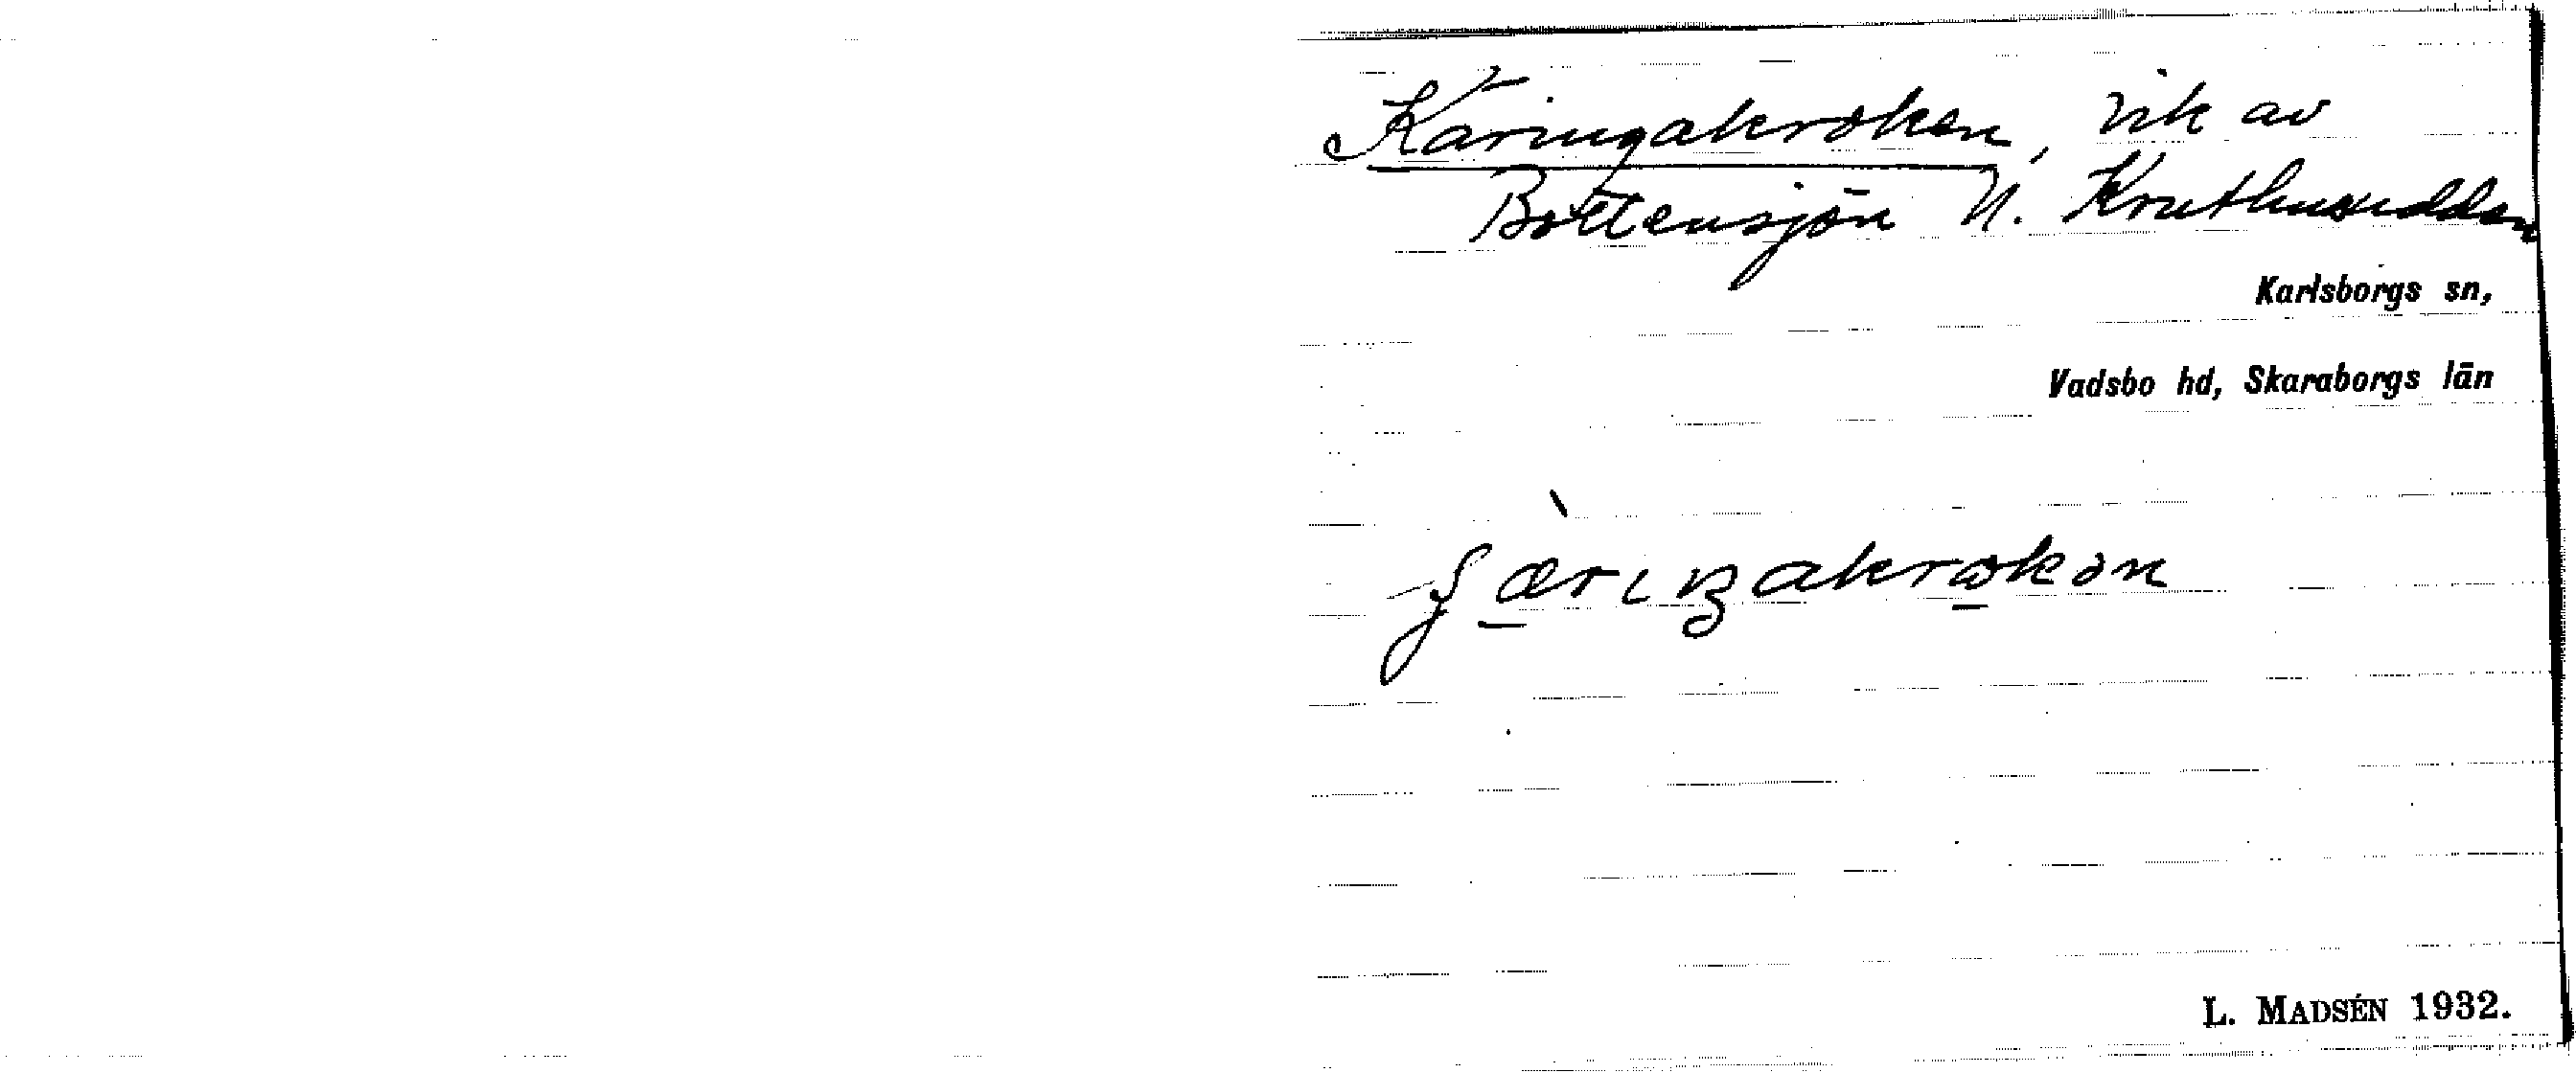 Käringakroken, vik av
Bottensjön N. Kruthusudden
Karlsborgs sn,
Vadsbo hd, Skaraborgs län
L. MADSÉN 1932.